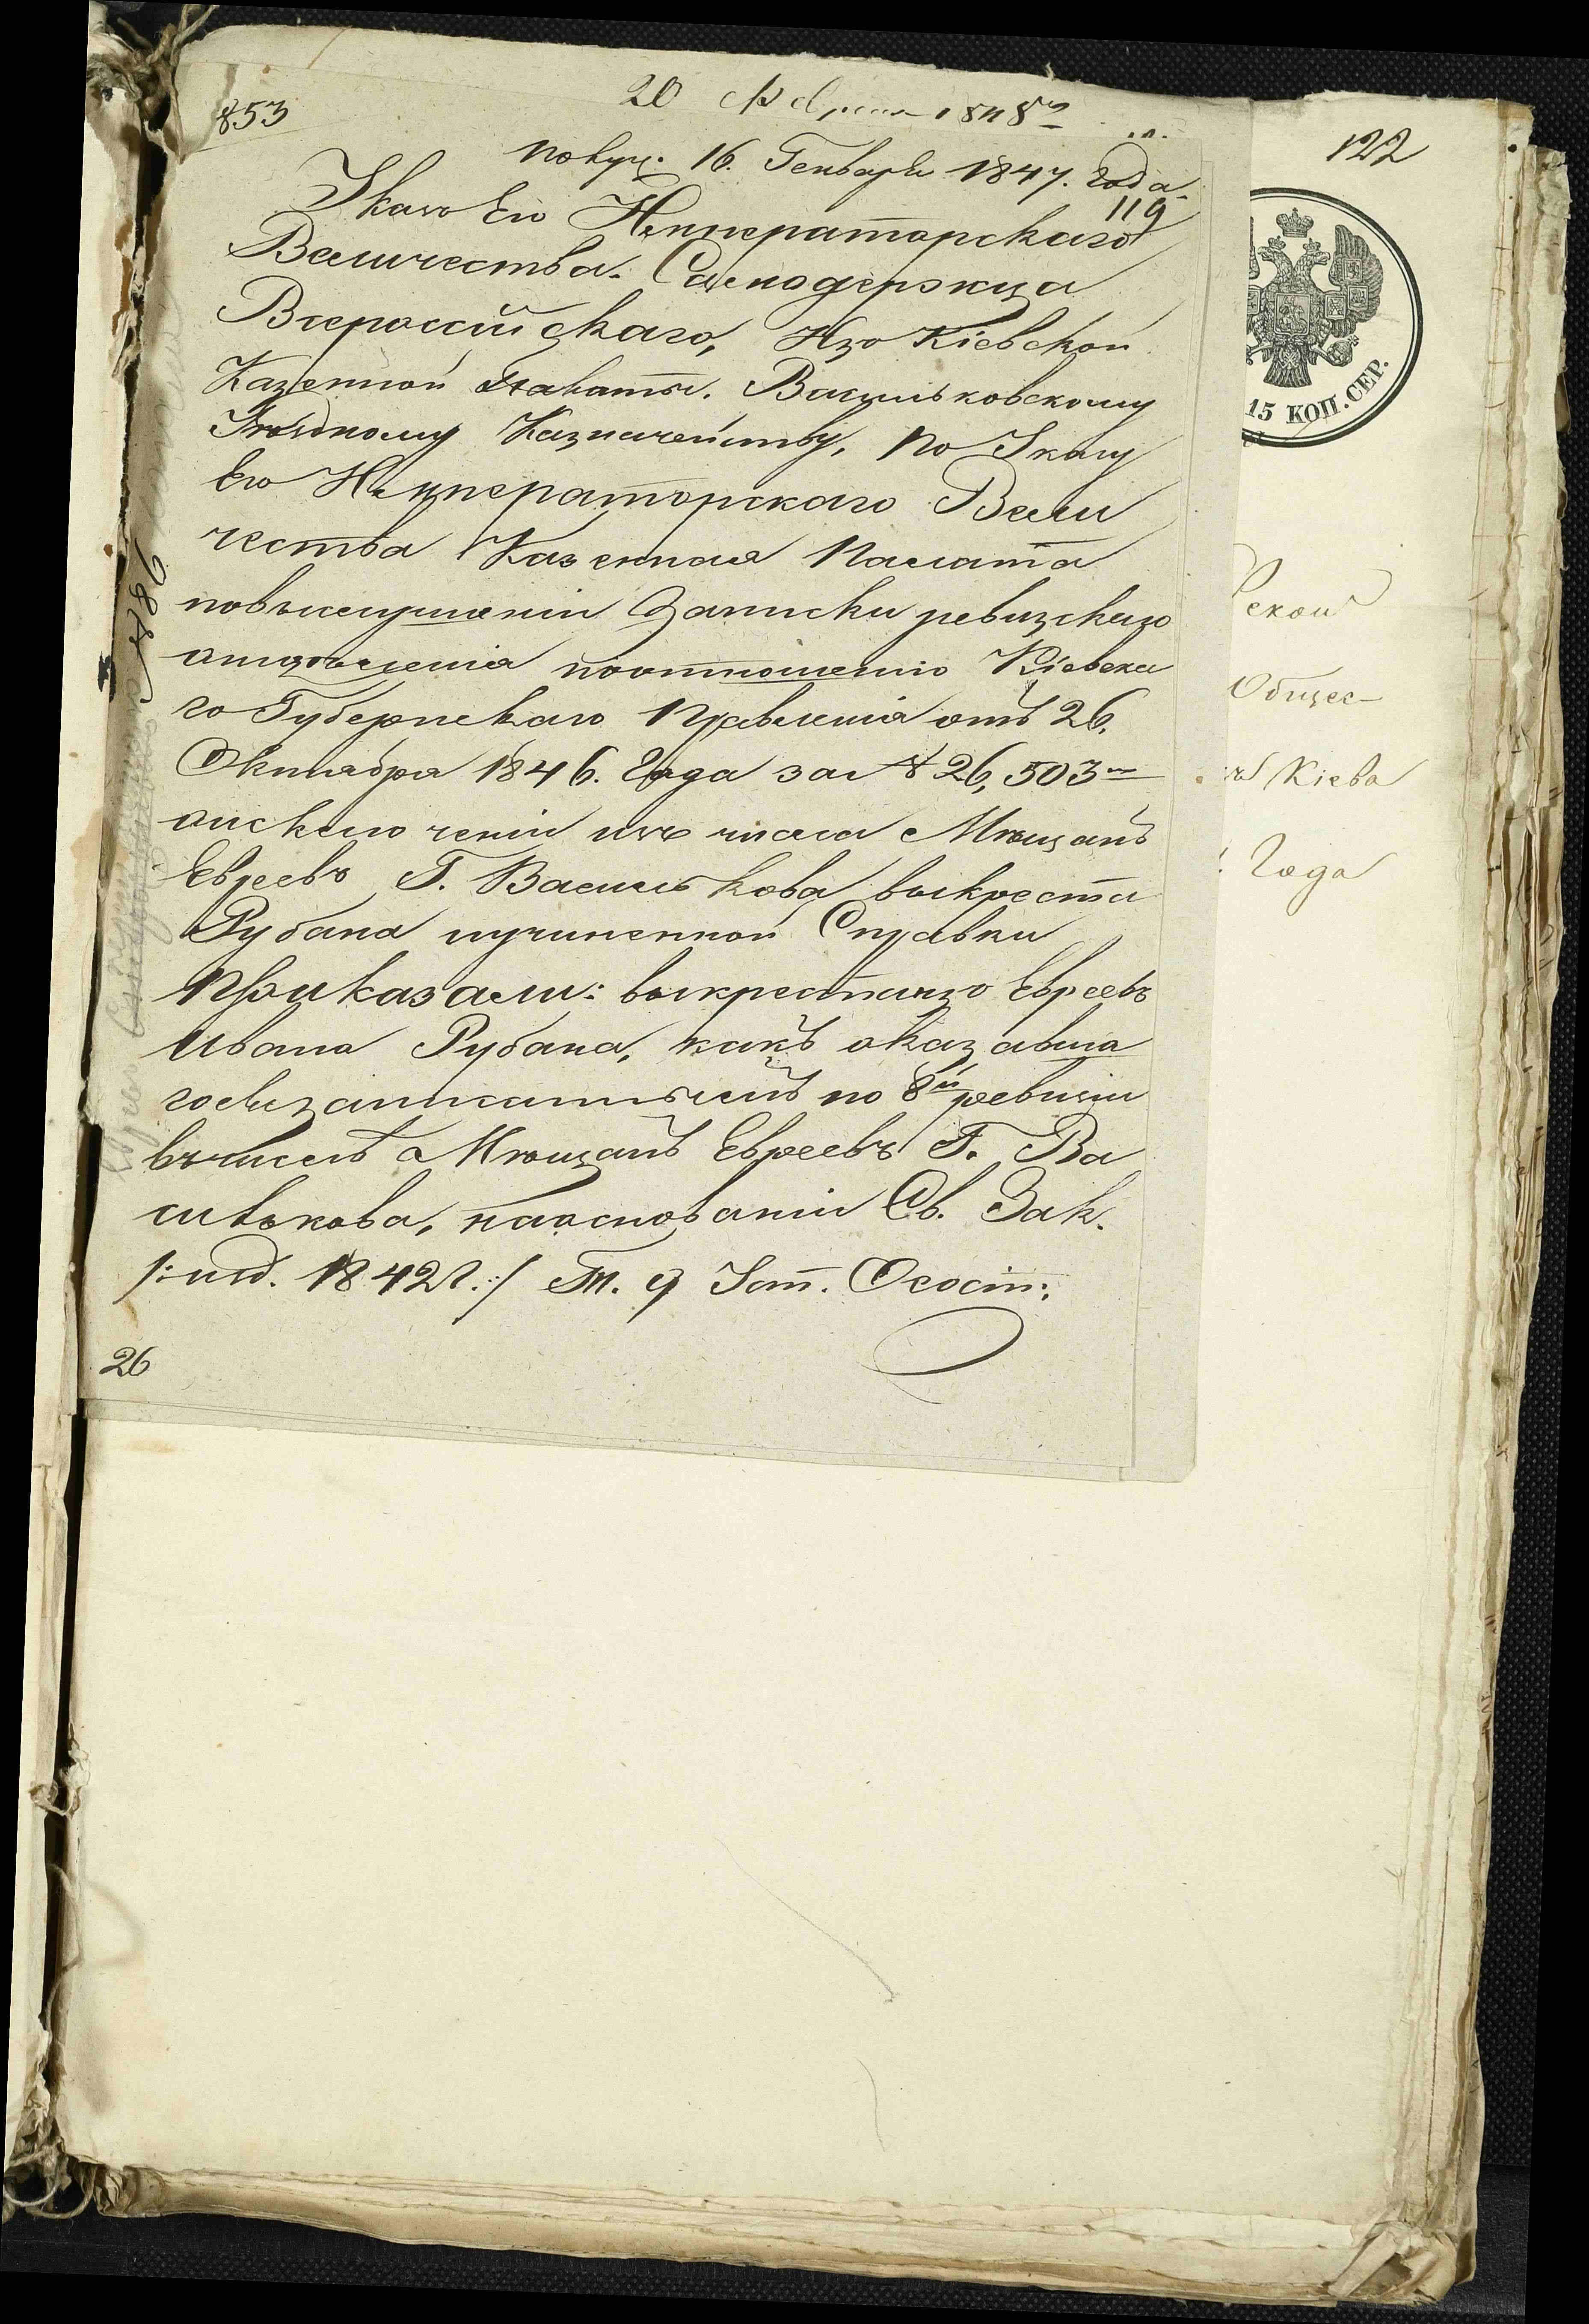 853
20 Февраля 1848 г
122
получ. 16. Генваря 1847. года
119
Указъ Его Императорскаго
Величества. Самодержца
Всероссійскаго, Изъ Кіевской
Казенной Палаты. Васильковскому
Уѣздному Казначейству, По Указу
Его Императорскаго Вели
чества Казенная Палата
повыслушаніи Записки ревизскаго
отдѣленія поотношенію Кіевска
го Губернскаго Правленія отъ 26.
Октября 1846. Года за № 26,503м
оисключеніи изъ числа Мѣщанъ
Евреевъ Г. Василькова выкреста
Рубана иучиненной Справки
Приказали: выкрестаизъ Евреевъ
Ивана Рубана, какъ оказавша
госязаписаннымъ по 8й ревизіи
въчислѣ Мѣщанъ Евреевъ Г. Ва
силькова, наоснованіи Св. Зак.
/: изд. 1842 г. :/ Т. 9 Уст. Осост:
26
15 КОП. СЕР.
ской
Общес-
Кіева
Года